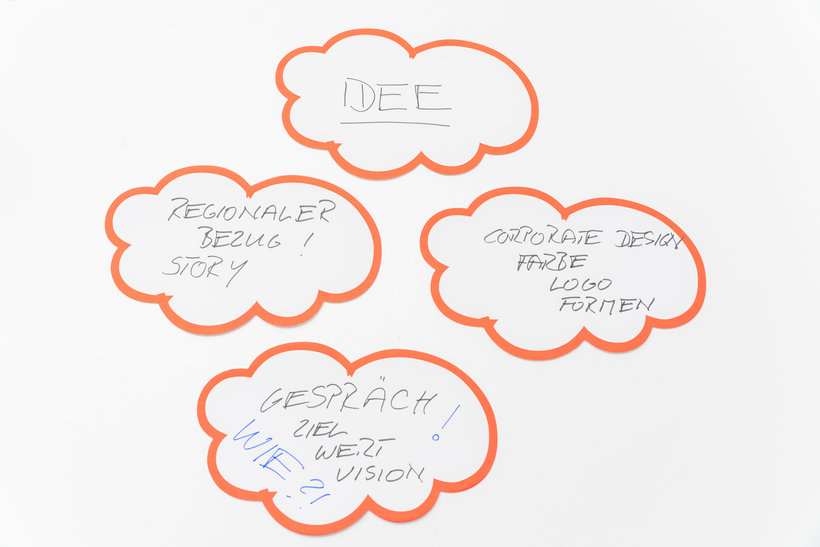 IDEE
REGIONALER
BEZUG !
STORY
CORPORATE DESIGN
FARBE
LOGO
FORMEN
GESPRÄCH !
ZIEL
WERT
VISION
WIE?!